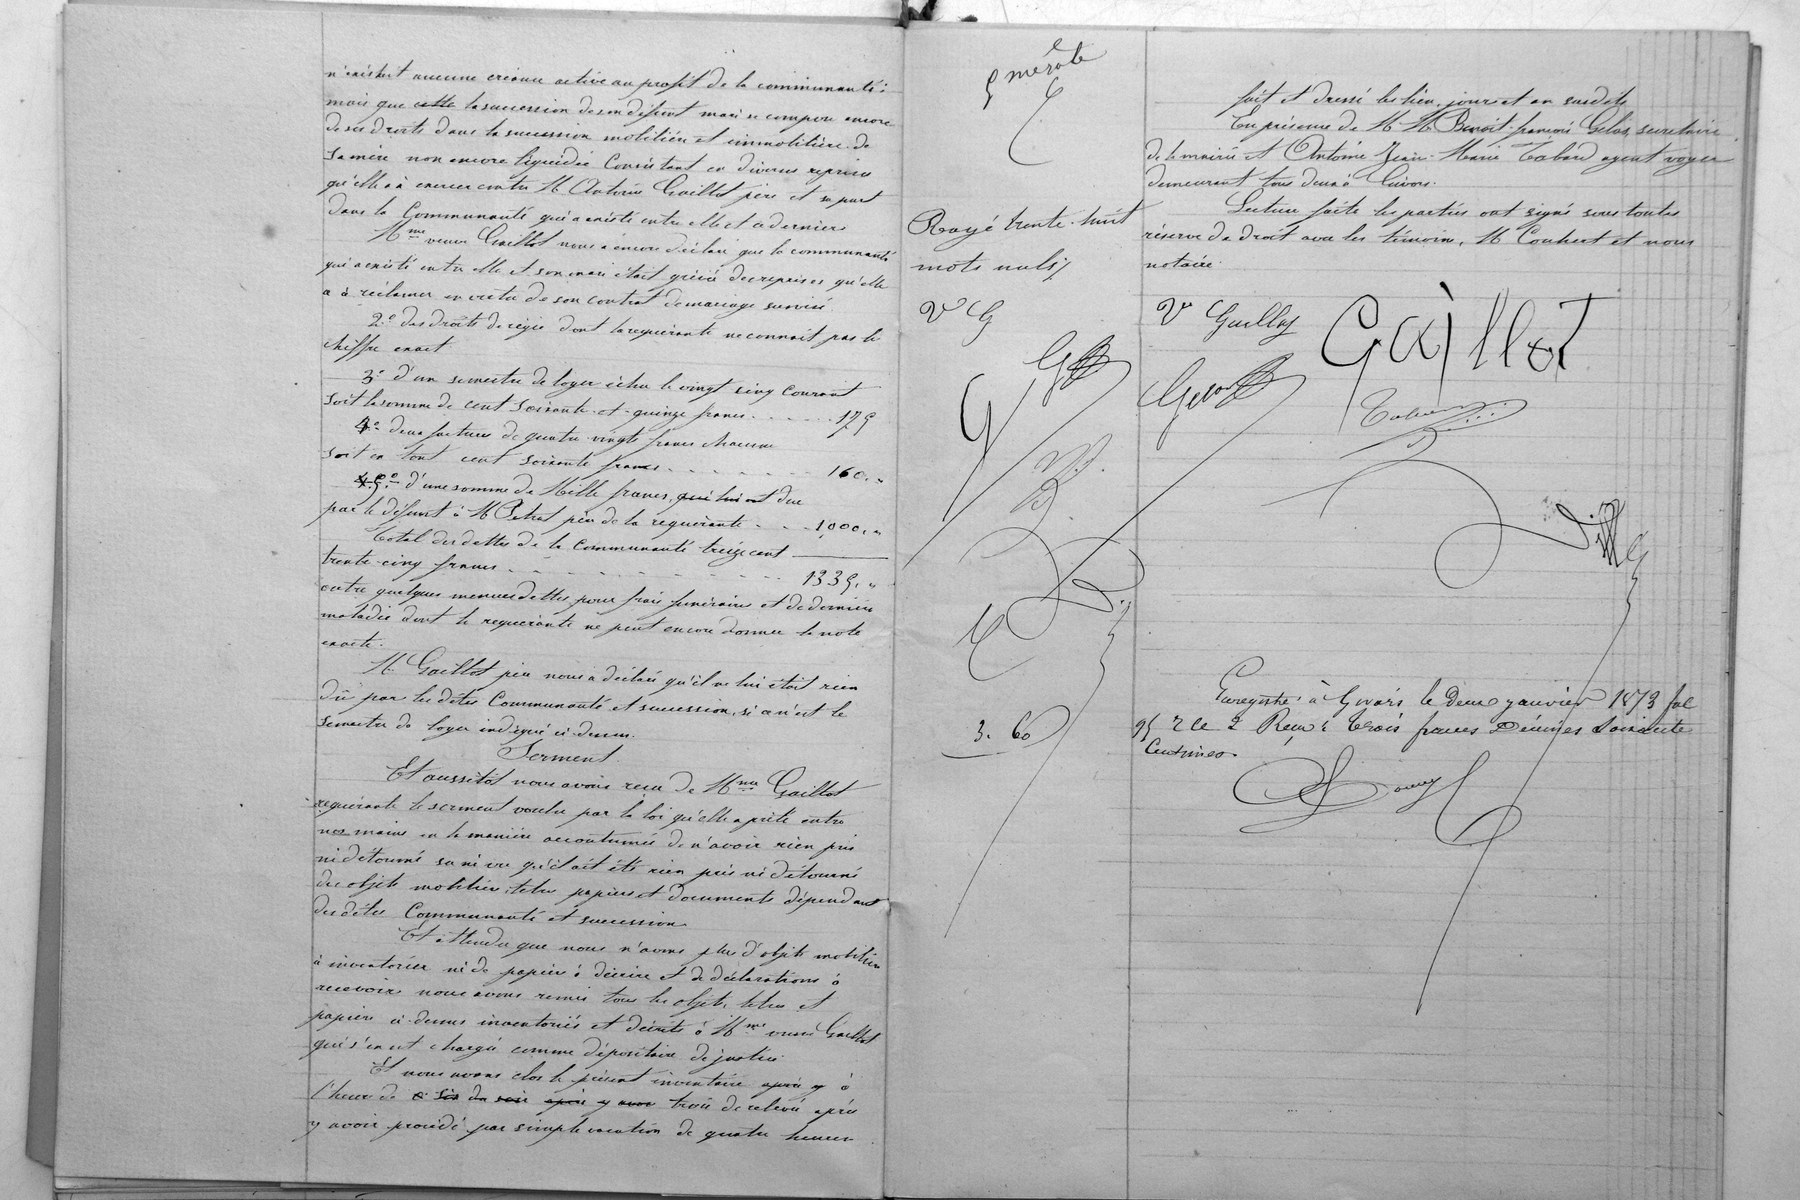 n'existait aucune créance active au profit de la communauté;
mais que cette la succession de son défunt mari se compose encore
de ses droits dans la succession mobilière et immobilière de
sa mère non encore liquidée Consistant en diverses reprises
qu'elle a à exercer contre M. Antoine Gaillot père et sa part
dans la Communauté qui a existé entre elle et ce dernier
Mme veuve Gaillot nous a encore déclaré que la communauté
qui a existé entre elle et son mari était grévée des reprises qu'elle
a à réclamer en vertu de son contrat de mariage susvisé
2o des droits de régie dont la requérante ne connait pas le
chiffre exact
3o d'un semestre de loyer échu le vingt cinq Courant
soit la somme de cent soixante-et-quinze francs . . . . . 175
4o deux factures de quatre vingts francs chacune
soit en tout cent soixante francs . . . . . . . 160. "
4 5o d'une somme de Mille francs, qui lui est due
par le défunt à M. Petrat père de la requérante . . . 1000. "
Total des dettes de la Communauté treize cent
trente-cinq francs . . . . . . . . . . 1335. "
outre quelques menues dettes pour frais funéraires et de dernière
maladie dont la requérante ne peut encore donner la note
exacte.
M. Gaillot père nous a déclaré qu'il ne lui était rien
dû par les dites Communauté et succession, si ce n'est le
semestre de loyer indiqué ci-dessus.
Serment.
Et aussitôt nous avons reçu de Mme Gaillot
requérante le serment voulu par la loi qu'elle a prêté entre
nos mains en la manière accoutumée de n'avoir rien pris
ni détourné su ni vu qu'il ait été rien pris ni détourné
des objets mobiliers, titres papiers et documents dépendant
des dites Communauté et succession
Et attendu que nous n'avons plus d'objets mobiliers
à inventorier ni de papiers à décrire et de déclarations à
recevoir nous avons remis tous les objets titres et
papiers ci-dessus inventoriés et décrits à Mme veuve Gaillot
qui s'en est chargée comme dépositaire de justice.
Et nous avons clos le présent inventaire après y à
l'heure de six du soir après y avoir trois de relevée après
y avoir procédé par simple vacation de quatre heures
Rayé trente-huit
mots nuls
V G
G
3. 60
fait et dressé les lieu, jour et an susdits
En présence de M. M. Benoit-françois Gelas, secrétaire
de la mairie et Antoine Jean-Marie Tabard agent voyer
demeurant tous deux à Givors.
Lecture faite les parties ont signé sous toutes
réserve de droit avec les témoins, M. Coubert et nous
notaire
Ve Gaillot
Gaillot
Gelas
Enregistré à Givors le Deux janvier 1873 fol
95 r Ce 2 Reçu: trois francs Décimes Soixante
Centimes.